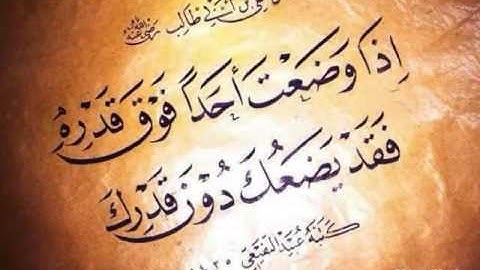 علي بن أبي طالب رضي الله عنه
إِذَا وَضَعْتَ أَحَدًا فَوْقَ قَدْرِهِ
فَقَدْ يَضَعُكَ دُوْنَ قَدْرِكَ
كتبه عبيد النفيعي